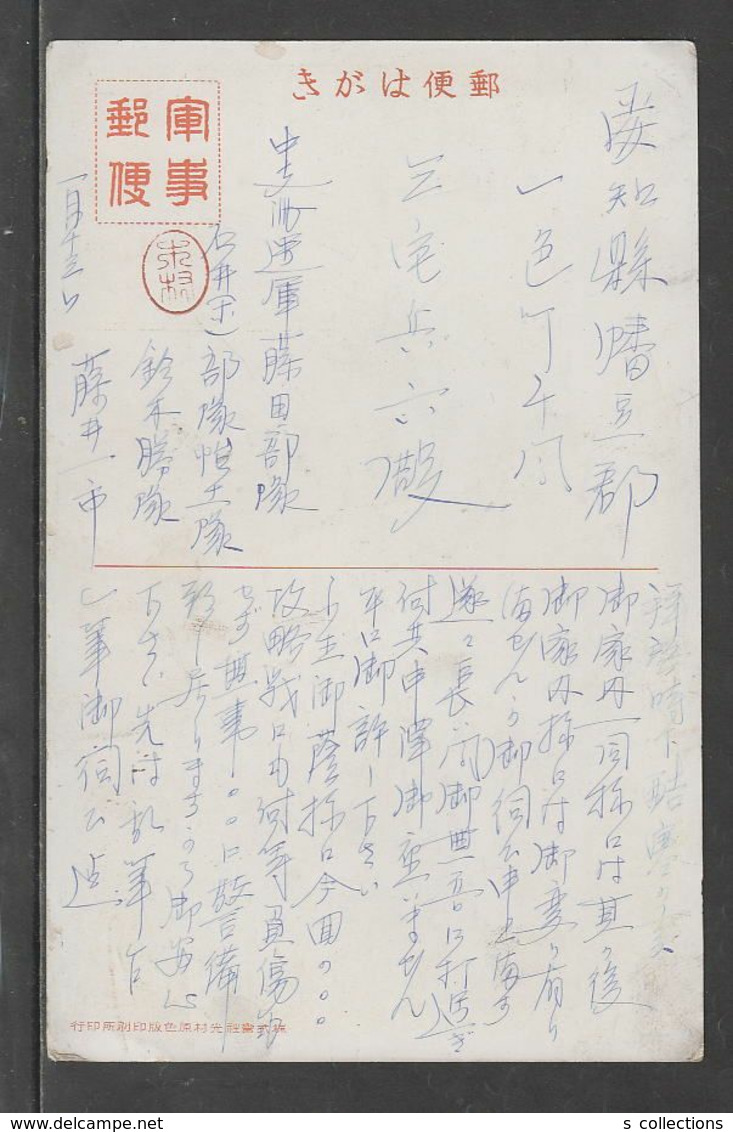 郵便はがき
軍事
郵便
愛知縣幡豆郡
一色町千間
三宅兵六殿
中支派遣軍藤田部隊
石井(宝)部隊 土隊
鈴木勝隊
藤井一市
一月十三日
木村
拝啓時下酷寒の
御家内一同様には其の後
御家内様には御変り有り
ませんか御伺ひ申上ます
遂々長い間御無音に打過ぎ
何共申譯御座いません
平に御許し下さい
小生御蔭様に今回の○○
攻略戦にも何等負傷も
せず無事○○に警備
致し居りますから御安心
下さい先は乱筆乍
ら一筆御伺ひ迄
株式會社光村原色版印刷所印行
s collections
Delcampe.net